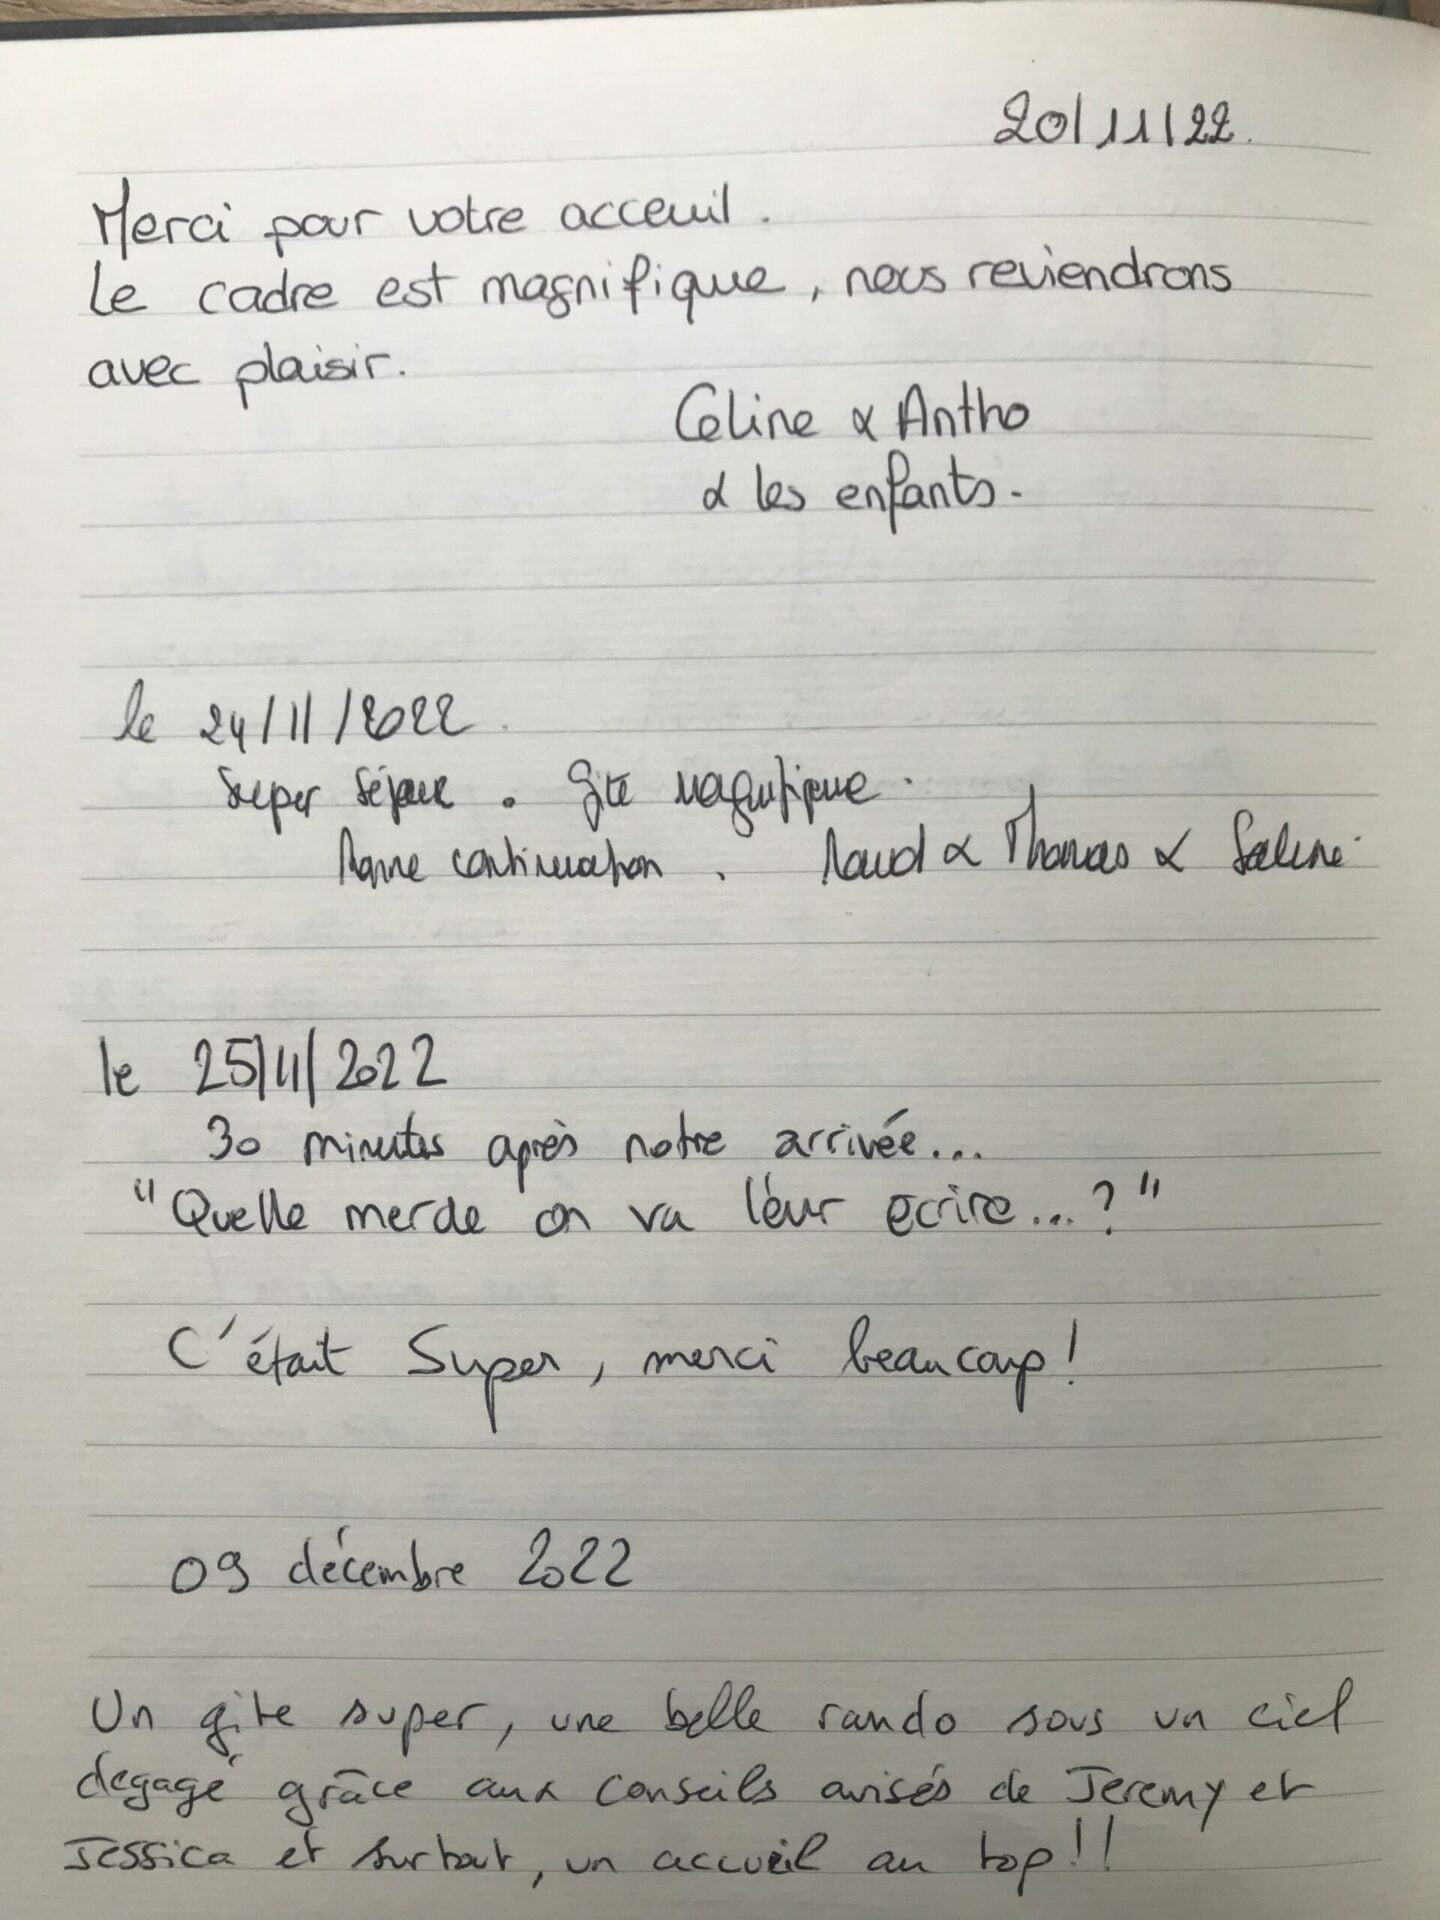 20/11/22.
Merci pour votre acceuil.
Le cadre est magnifique, nous reviendrons
avec plaisir.
Céline & Antho
& les enfants.
le 24/11/2022.
Super séjour. Gîte magnifique.
Bonne continuation. & Thomas &
le 25/11/2022
30 minutes après notre arrivée...
"Quelle merde on va leur ecrire...?"
C'était Super, merci beaucoup!
09 décembre 2022
Un gîte super, une belle rando sous un ciel
degagé grâce aux conseils avisés de Jeremy et
Jessica et surtout, un accueil au top!!